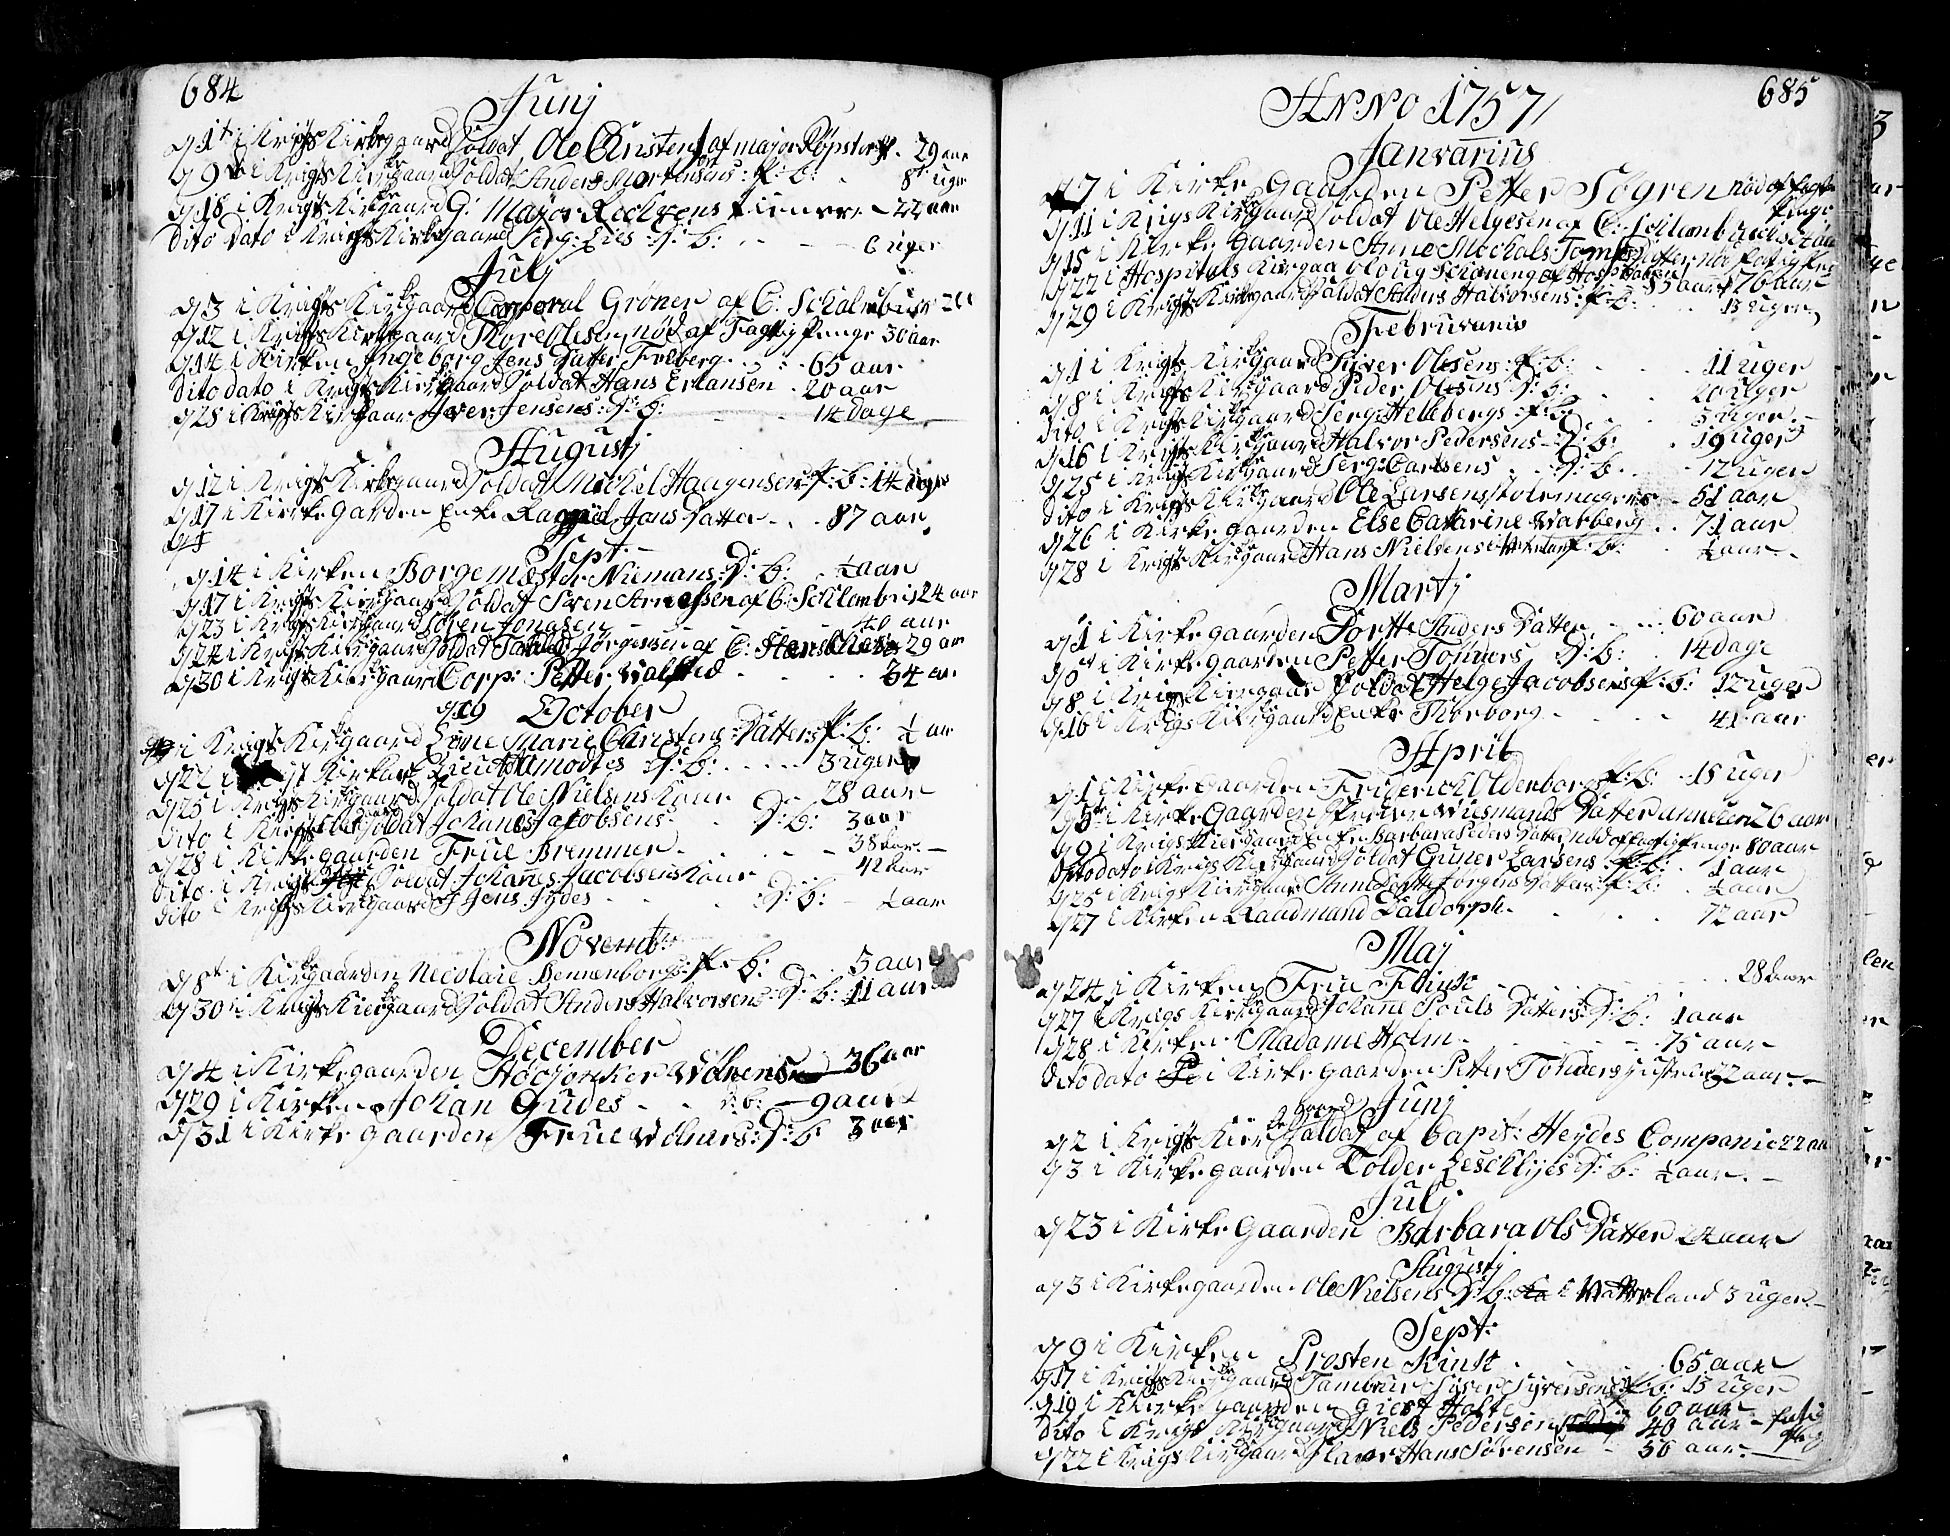 684
Junj
1t i Krigs Kirkegaard Soldat Ole Christens af major Røpstorf 29 aar
9de i Krigs Kirkegaard Soldat Anders Mortensens: P: b: 8t uger
18 i Krigs Kirkegaard G: Major tienere 22 aar
Dito Dato i Krigs Kirkegaard Serg: D: b: 6 uger
Julj
3 i Krigs Kirkegaard Corporal Grøner af C: Schalmburg
12 i Krigs Kirkegaard Thore Olsen, nød af Fattig Penge 30 aar
14 i Kirken Ingeborg Jens Datter Freberg 65 aar
Dito dato i Krigs Kirkegaard Soldat Hans Erlansen 20 aar
28 i Krigs Kirkegaar Iver Jensens: D: b: 14 dage
Augustj
12 i Krigs Kirkegaard Soldat Michel Haagensens P: b: 14 dage
17 i Kirke Garden Enke Ragnild Jans Datter 87 aar
Sept:
14 i Kirken Borgemæster Niemans: D: b: 1/2 aar
17 i Krigs Kirkegaard Soldat Sven Arnessen af C: Schlomb: 24 aar
23 i Krigs Kirkegaard Soren Jonasen 40 aar
24 i Krigs Kirkegaard Soldat Jørgensen af C: 29 aar
30 i Krigs Kirkegaard Corp: Petter Walsted 34 aar
19 October
i Krigs Kirkegaard Marie Christens: Datters P: b: 1/2 aar
22 i Kirken Lieut: Amodtes D: b: 3 uger
25 i Krigs Kirkegaard Soldat Ole Nielsens Kone 28 aar
Dito i Krigs Soldat Johanes Jacobsens D: b: 3 aar
28 i Kirke gaarden Frue Bremmer 38 aar
Dito i Krigs Soldat Johannes Jacobsens Kone 42 aar
Dito i Krigs Kirkegaard Jens Jydes D: b: 1/2 aar
Novembr
8t i Kirkegaarden Nicolaie Bennenborgs: P: b: 3 aar
30 i Krigs Kirkegaard Soldat Anders Halvorsens: D: b: 11 aar
December
4 i Kirkegaarden Wolners 36 aar
29 i Kirken Johan Gudes d: b: 9 aar
31 i Kirke gaarden Frue Wolners: D: b: 3 aar
685
Anno 1757
Janvarius
7 i Kirke Gaarden Petter Søgren nød af fattig Penge
11 i Krigs Kirkegaard Soldat Ole Helgesen af C: Schlomb
15 i Kirke Gaarden Anne Michals Datter nød fattig Pen
22 i Hospitals Kirgaa Oloug Schøneng af Hospitalen 85 aar 76 aar
29 i Krigs Kirkegaard Soldat Anders Halvorsens: P: b: 15 uger
Februvario
1 i Krigs Kirkegaard Syver Olesens: P: b: 11 uger
8 i Krigs Kirkegaard Peder Olesens D: b: 20 uger
Dito i Krigs Kirkegaard Serg: Hellebergs: P: b: 5 uger
16 i Krigs Kirkegaard Halvor Pedersens D: b: 19 uger
25 i Krigs Kirkegaard Serg: Carlsens D: b: 12 uger
Dito i Krigs Kirkegaard Ole Larsens stolemagers 51 aar
26 i Kirke gaarden Else Catarine Warberg 71 aar
28 i Krigs Kirkegaard Hans Nielsens i P: b: 1/2 aar
Martj
1 i Kirke gaarden Dorthe Anders Datter 60 aar
i Kirke gaarden Petter Tonners D: b: 14 dage
8 i Krigs Kirkegaar Soldat Helge Jacobsens P: b: 12 uger
16 i Krigs Kirkegaard Enke Thorborg 41 aar
April
1 i Kirke Gaarden Friderich Oldenborgs P: b: 15 uger
5te i Kirke Gaarden Wiesmands Datter 26 aar
9 i Krigs Kirkegaard Enke Barbara Peders Datter nød af fattig Penge 80 aar
Dito dato i Krigs Kirkegaard Soldat Guner Larsens P: b: 1 aar
25 i Krigs Kirkegaar Anne Dorthe Jørgens Datter: P: b: 1/2 aar
27 i Kirken Raadmand Daldorph 72 aar
Maj
24 i Kirken Frue Flindt 28 aar
27 i Krigs Kirkegaard Johane Pouls Datters D: b: 1 aar
28 i Kirken Madame Holm 75 aar
Dito dato i Kirke gaarden Petter Tonders 32 aar
gaard Junj
2 i Krigs Kirke Soldat af Capit: Heydes Companie 22 aar
3 i Kirke gaarden Tolder D: b: 1/2 aar
Julj
23 i Kirke Gaarden Barbara Ols Datter 24 aar
Augustj
3 i Kirke gaarden Ole Nielsens D: b: i Watterland 3 uger
Sept:
9 i Kirken Prosten Kinst 65 aar
17 i Krigs Kirkegaard Tambur Syver Syversens P: b: 15 uger
19 i Kirke gaarden Giert Holte 60 aar
Dito i Krigs Kirkegaard Niels Pedersen 40 aar fatig
22 i Krigs Kirkegaard Slaver Hans Sørensen 56 aar